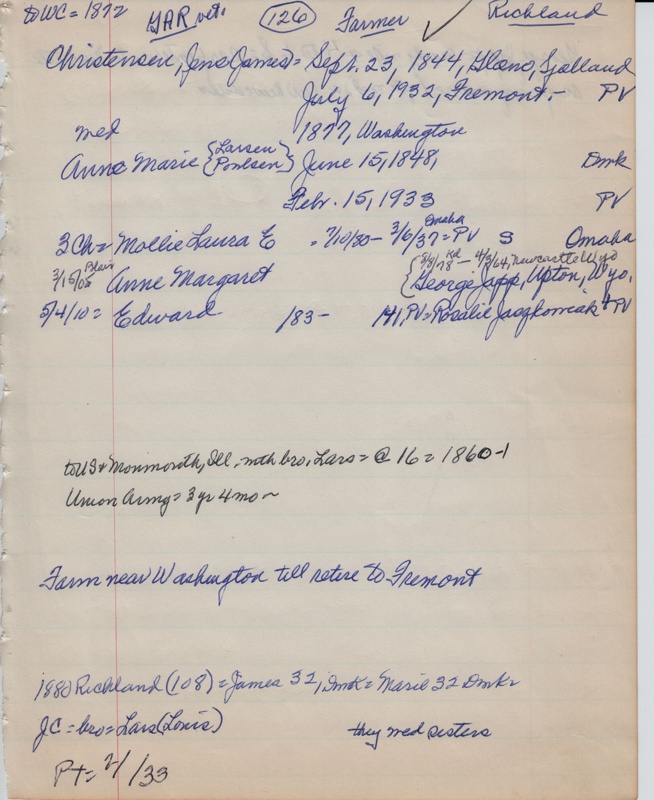 to WC = 1872 GAR vet. 126 Farmer ✓ Richland
Christensen, Jens (James) = Sept. 23, 1844, Glano, Sjalland
July 6, 1932, Fremont - PV
med 1877, Washington
Anne Marie {Larsen Poulsen} June 15, 1848, Dmk
Febr. 15, 1933 PV
3 Ch = Mollie Laura E = 7/10/80 - 3/6/37 = PV Omaha S Omaha
3/15/05 Blair Anne Margaret {3/9/78 - 4/3/64, Newcastle Wyo
George Japp, Upton, Wyo.
5/4/10 = Edward /83 - PV = Rosalie PV
to US + Monmouth, Ill. with bro, Lars = @ 16 = 1860-1
Union Army = 3 yr 4 mo ~
Farm near Washington till retire to Fremont
1880 Richland (108) = James 32, Dmk = Marie 32 Dmk
JC = bro = Lars (Louis) they med sisters
Pt = 2/ /33